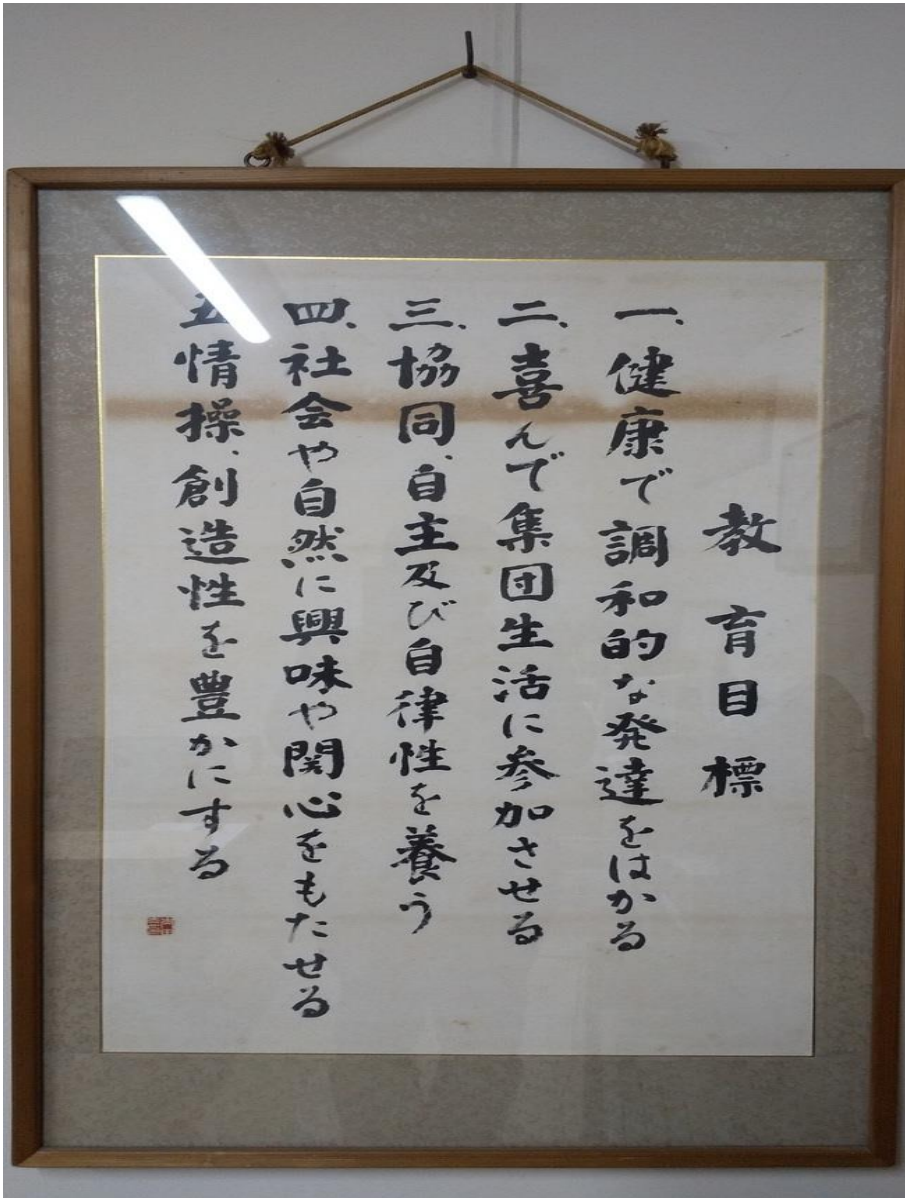 教育目標
一、健康で調和的な発達をはかる
二、喜んで集団生活に参加させる
三、協同、自主及び自律性を養う
四、社会や自然に興味や関心をもたせる
五、情操、創造性を豊かにする